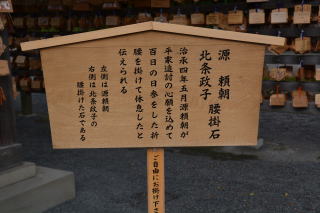 源　頼朝
北条政子　腰掛石
治承四年五月源頼朝が
平家追討の心願を込めて
百日の日参をした折
腰を掛けて休息したと
伝えられる
左側は源頼朝
右側は北条政子の
腰掛けた石である
ご自由にお掛け下さ